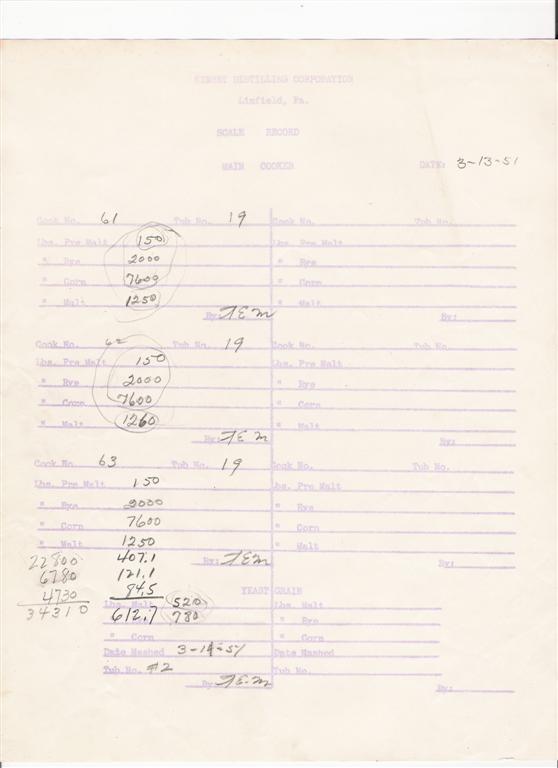 KINSEY DISTILLING CORPORATION
Linfield, Pa.
SCALE RECORD
MAIN COOKER DATE: 3-13-51
Cook No. 61 Tub No. 19 Cook No. Tub No.
Lbs. Pre Malt 150 Lbs. Pre Malt
" Rye 2000 " Rye
" Corn 7600 " Corn
" Malt 1250 " Malt
By: FEM By:
Cook No. 62 Tub No. 19 Cook No. Tub No.
Lbs. Pre Malt 150 Lbs. Pre Malt
" Rye 2000 " Rye
" Corn 7600 " Corn
" Malt 1260 " Malt
By: FEM By:
Cook No. 63 Tub No. 19 Cook No. Tub No.
Lbs. Pre Malt 150 Lbs. Pre Malt
" Rye 2000 " Rye
" Corn 7600 " Corn
" Malt 1250 " Malt
22800 407.1 By: FEM By:
6780 121.1
4730 84.5 YEAST GRAIN
34310 Lbs. Malt 520 Lbs. Malt
612.7 780 " Rye
" Corn " Corn
Date Mashed 3-14-51 Date Mashed
Tub No. #2 Tub No.
By: FEM By: